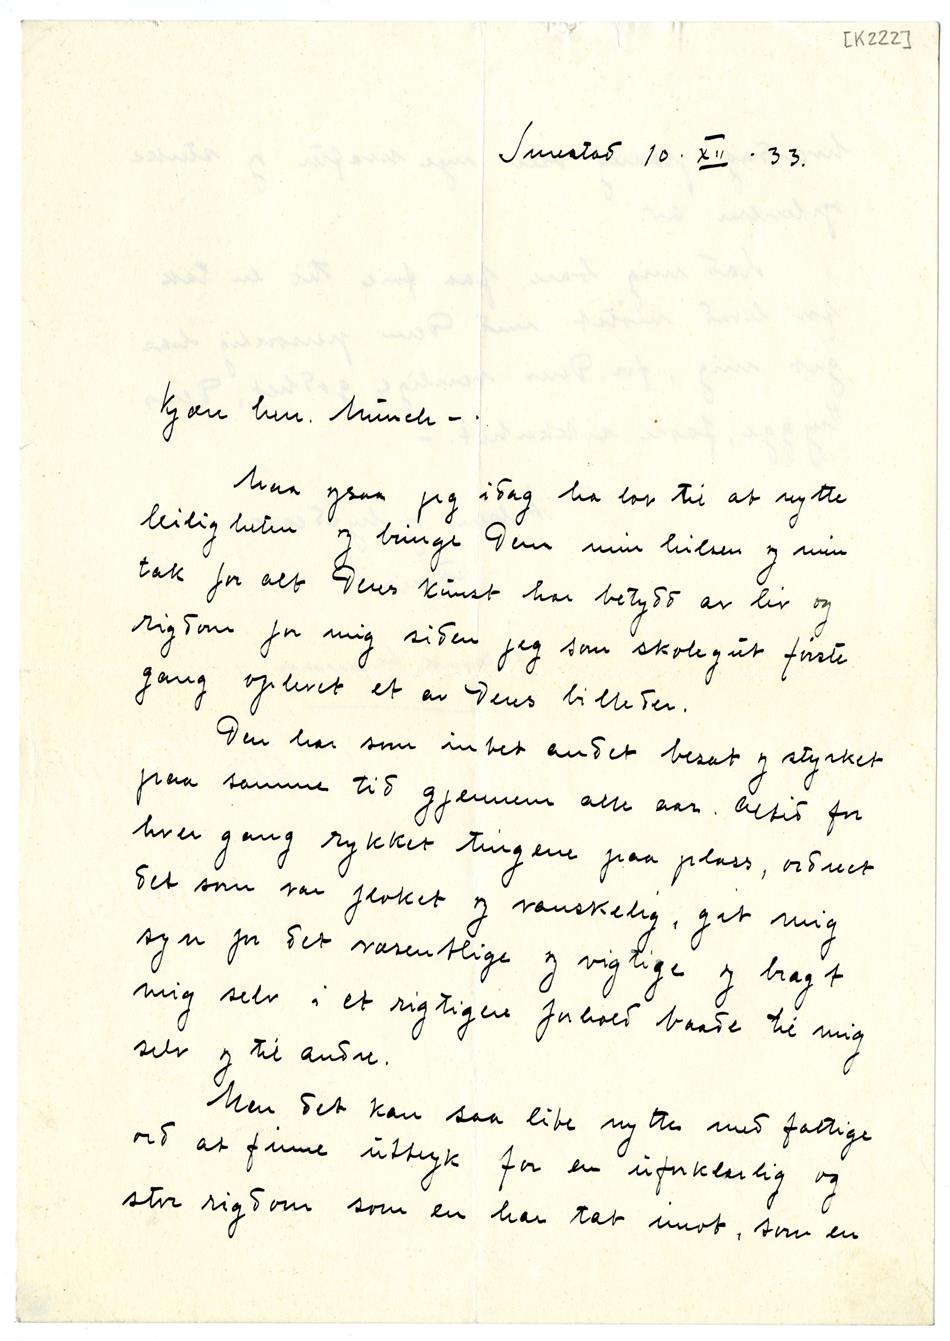 [K222]
Smestad 10. XII. 33.
Kjære herr. Munch –
Maa ogsaa jeg idag ha lov til at nytte
leiligheten og bringe Dem min hilsen og min
tak for alt Deres kunst har betydd av liv og
rigdom for mig siden jeg som skolegut første
gang oplevet et av Deres billeder.
Den har som intet andet besat og styrket
paa samme tid gjennem alle aar. Altid for
hver gang rykket tingene paa plass, ordnet
det som var floket og vanskelig, git mig
syn for det væsentlige og vigtige og bragt
mig selv i et rigtigere forhold baade til mig
selv og til andre.
Men det kan saa lite nytte med fattige
ord at finne uttryk for en uforklarlig og
stor rigdom som en har tat imot, som en